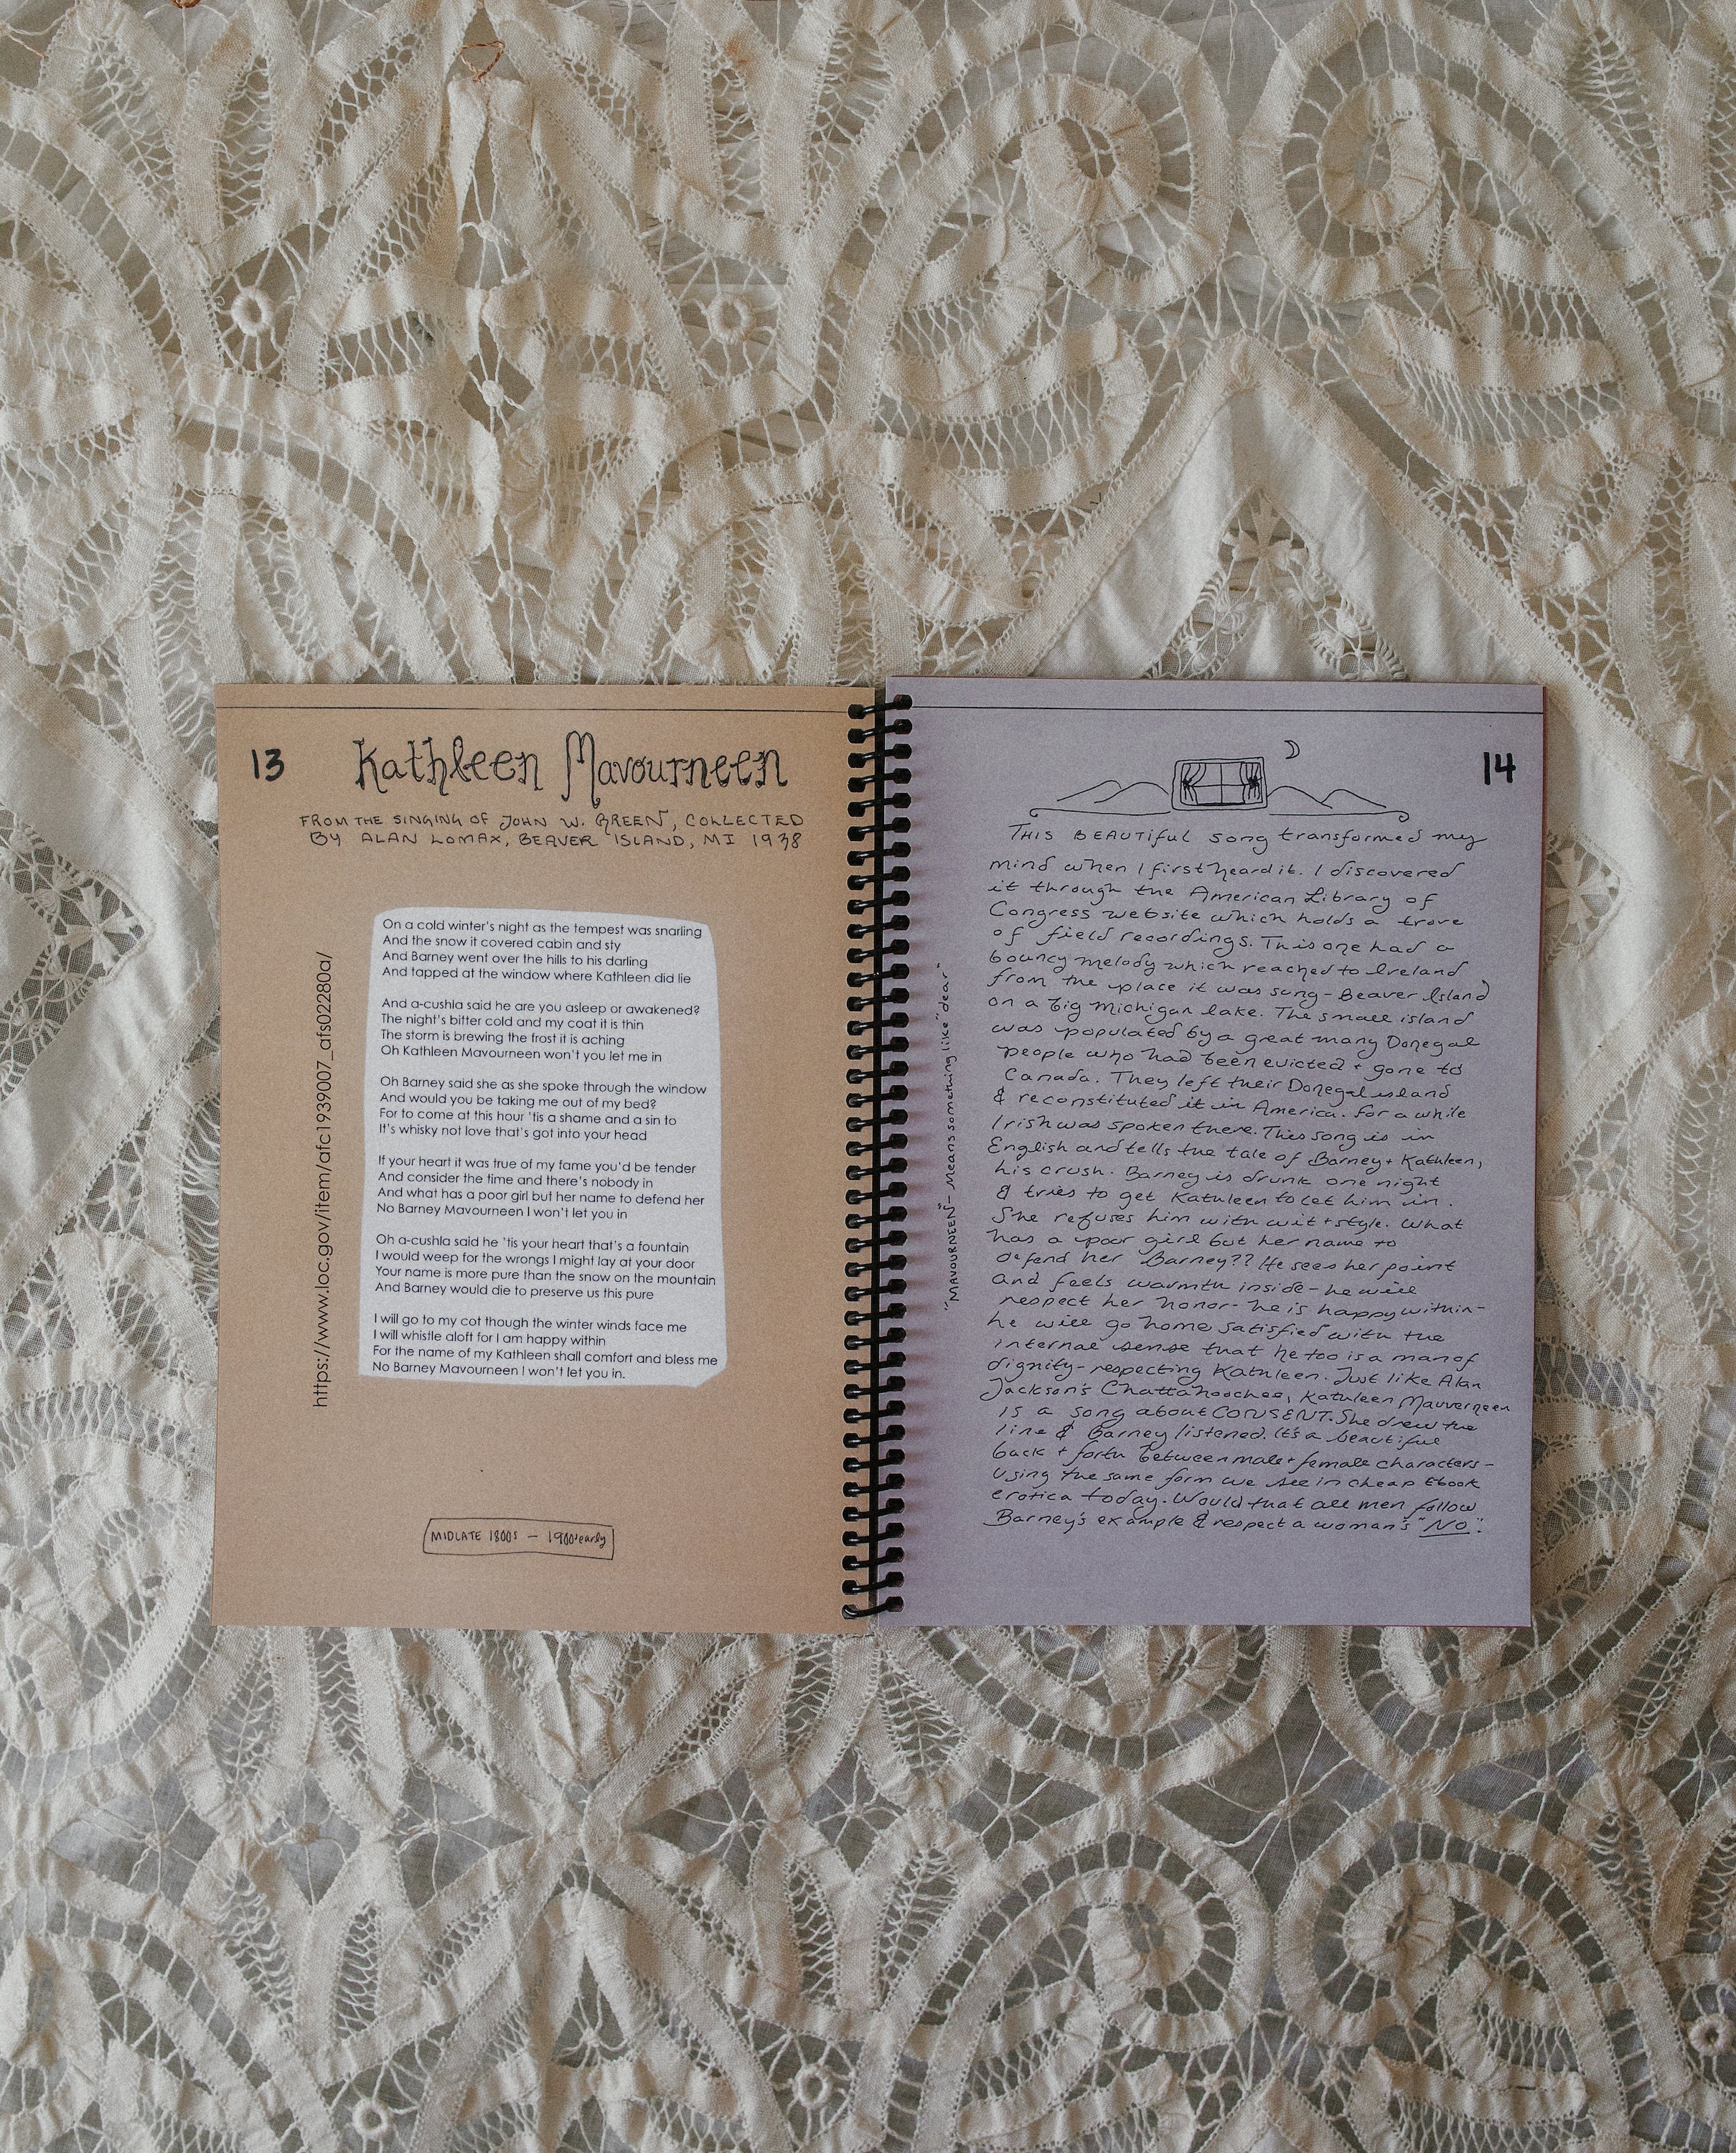 13
Kathleen Mavourneen
FROM THE SINGING OF JOHN W. GREEN, COLLECTED
BY ALAN LOMAX, BEAVER ISLAND, MI 1938
https://www.loc.gov/item/afc1939007_afs02280a/
On a cold winter's night as the tempest was snarling
And the snow it covered cabin and sty
And Barney went over the hills to his darling
And tapped at the window where Kathleen did lie
And a-cushla said he are you asleep or awakened?
The night's bitter cold and my coat it is thin
The storm is brewing the frost it is aching
Oh Kathleen Mavourneen won't you let me in
Oh Barney said she as she spoke through the window
And would you be taking me out of my bed?
For to come at this hour 'tis a shame and a sin to
It's whisky not love that's got into your head
If your heart it was true of my fame you'd be tender
And consider the time and there's nobody in
And what has a poor girl but her name to defend her
No Barney Mavourneen I won't let you in
Oh a-cushla said he 'tis your heart that's a fountain
I would weep for the wrongs I might lay at your door
Your name is more pure than the snow on the mountain
And Barney would die to preserve us this pure
I will go to my cot though the winter winds face me
I will whistle aloft for I am happy within
For the name of my Kathleen shall comfort and bless me
No Barney Mavourneen I won't let you in.
MIDLATE 1800s — 1900s early
14
THIS BEAUTIFUL song transformed my
mind when I first heard it. I discovered
it through the American Library of
Congress website which holds a trove
of field recordings. This one had a
bouncy melody which reached to Ireland
from the place it was sung - Beaver Island
on a big Michigan lake. The small island
was populated by a great many Donegal
people who had been evicted + gone to
Canada. They left their Donegal island
& reconstituted it in America. For a while
Irish was spoken there. This song is in
English and tells the tale of Barney + Kathleen,
his crush. Barney is drunk one night
& tries to get Kathleen to let him in.
She refuses him with wit + style. What
has a poor girl but her name to
defend her Barney?? He sees her point
and feels warmth inside - he will
respect her honor - he is happy within -
he will go home satisfied with the
internal sense that he too is a man of
dignity - respecting Kathleen. Just like Alan
Jackson's Chattahoochee, Kathleen Mauverneen
is a song about CONSENT. She drew the
line & Barney listened. It's a beautiful
back + forth between male + female characters -
using the same form we see in cheap ebook
erotica today. Would that all men follow
Barney's example & respect a woman's "NO".
"MAVOURNEEN" - means something like "dear"